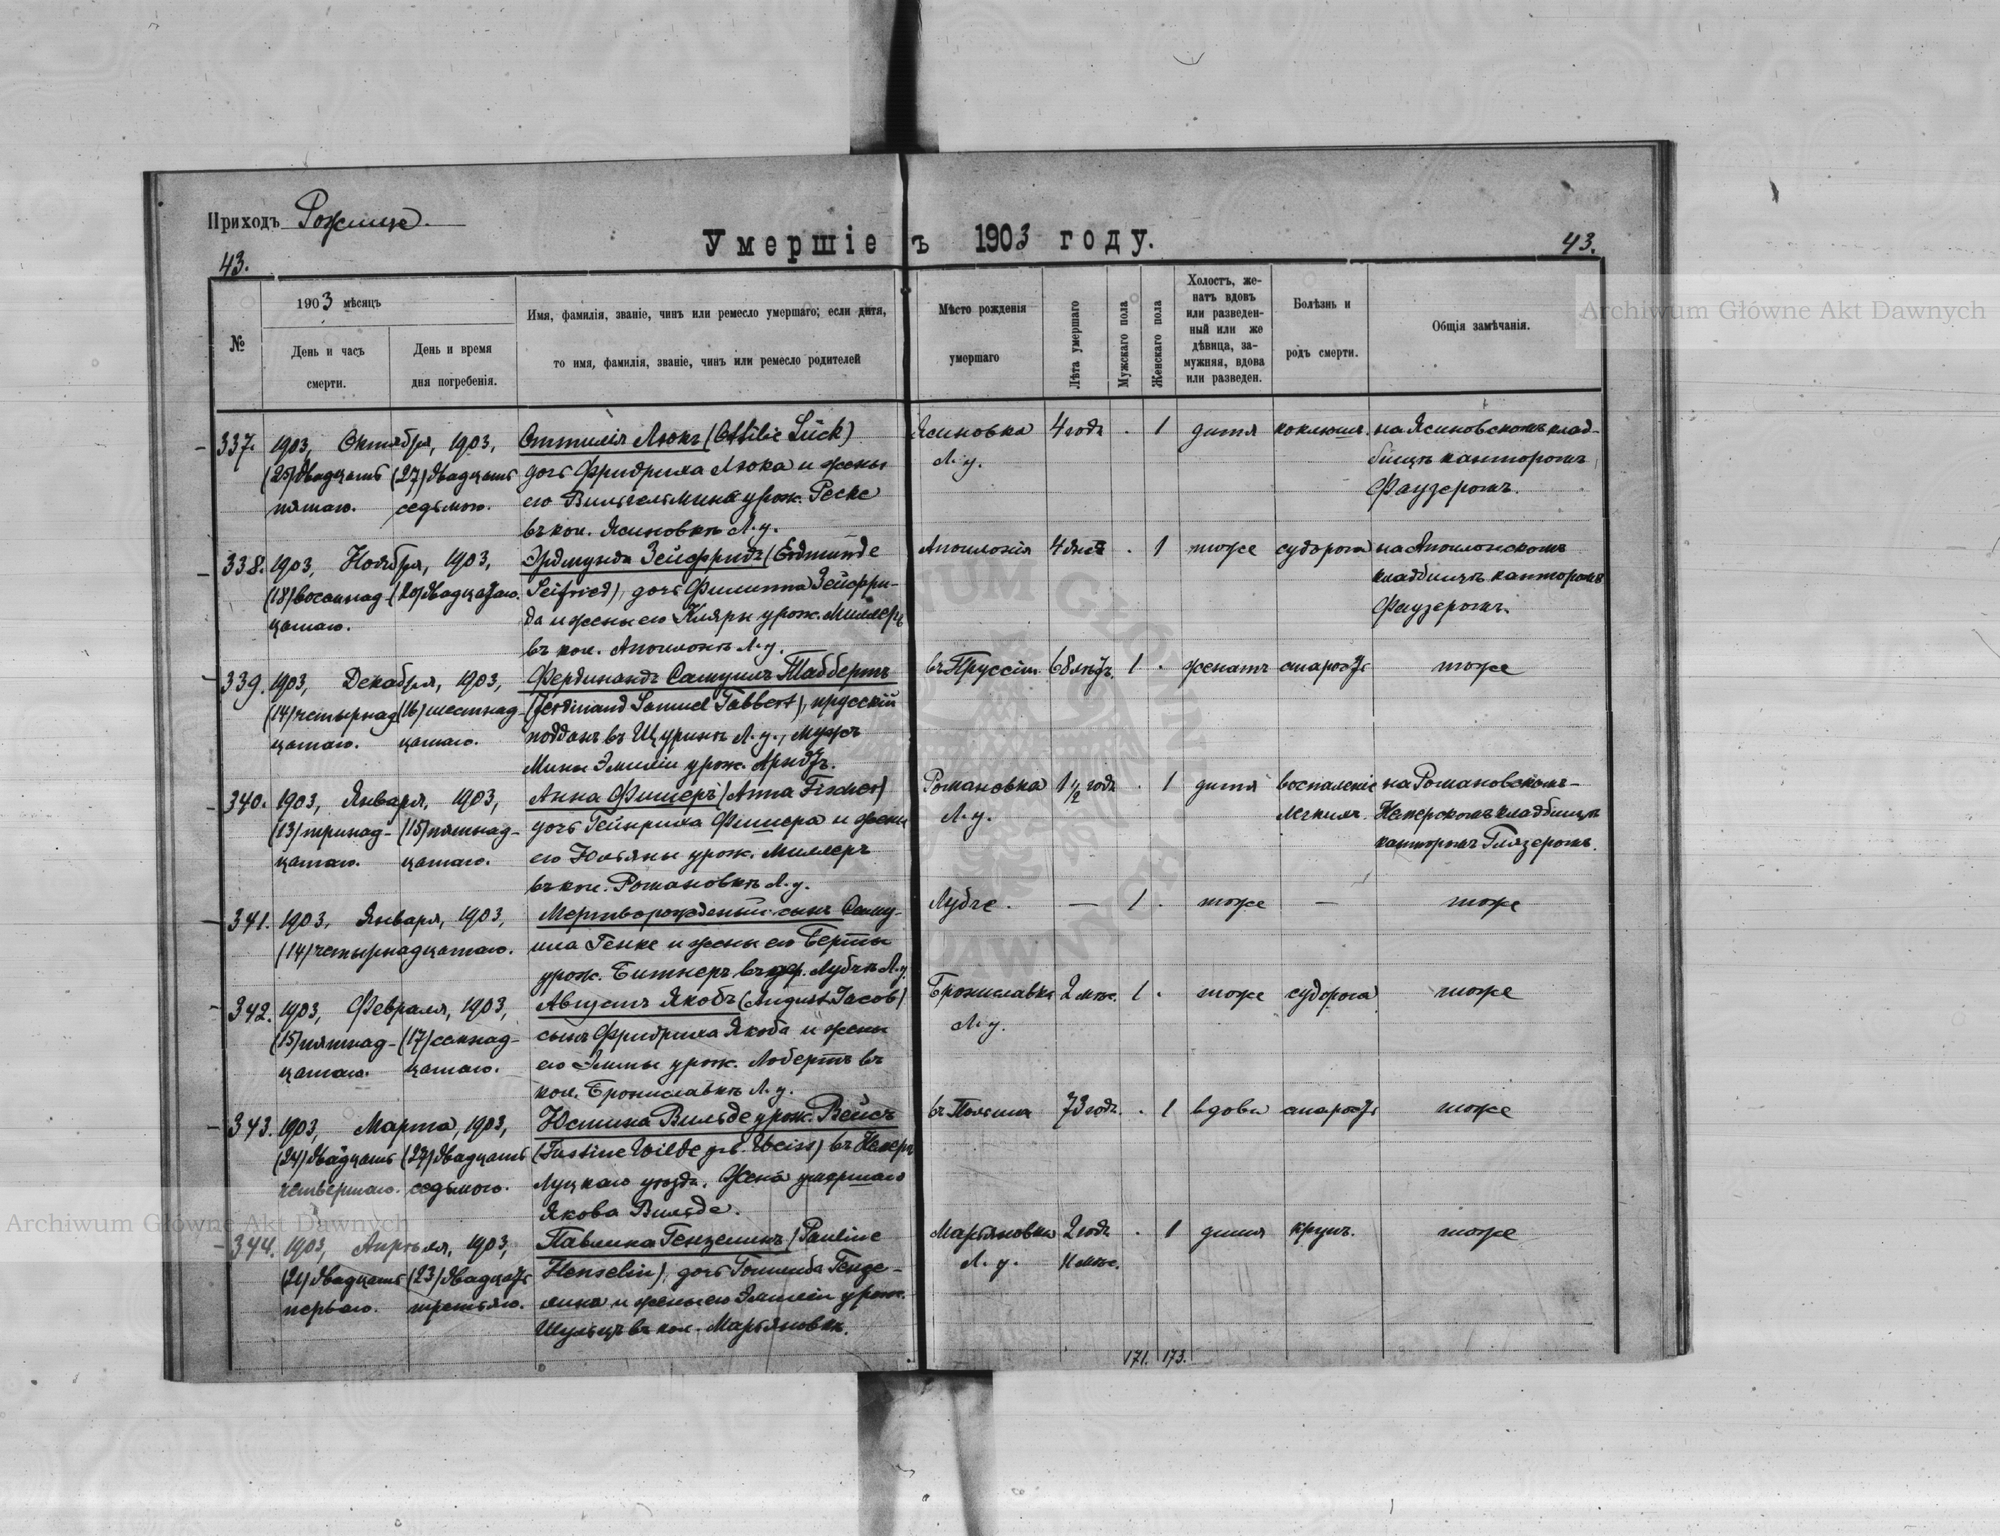 Приходъ Рожище.
Умершіе въ 1903 году.
43.
43.
№
1903 мѣсяцъ
День и часъ
смерти.
День и время
дня погребенія.
Имя, фамилія, званіе, чинъ или ремесло умершаго; если дитя,
то имя, фамилія, званіе, чинъ или ремесло родителей
Мѣсто рожденія
умершаго
Лѣта умершаго
Мужскаго пола
Женскаго пола
Холостъ, же-
натъ вдовъ
или разведен-
ный или же
дѣвица, за-
мужняя, вдова
или разведен.
Болѣзнь и
родъ смерти.
Общія замѣчанія.
337. 1903, Октября, 1903,
(25) двадцать
пятаго.
(27) двадцать
седьмого.
Оттилія Люкъ (Ottilie Lück)
дочь Фридриха Люка и жены
его Вильгельмины урож. Реске
въ кол. Ясиновкѣ Л. у.
Ясиновка
Л. у.
4 года . 1 дитя коклюшъ.
на Ясиновскомъ клад-
бищѣ канторомъ
Фаузеромъ.
338. 1903, Ноября, 1903,
(18) восемнад-
цатаго.
(20) двадцатаго.
Эрдмунда Зейфридъ (Erdmunde
Seifried), дочь Филиппа Зейфри-
да и жены его Клары урож. Миллеръ
въ кол. Аполонѣ Л. у.
Аполонія 4 дня . 1 тоже судорога
на Аполонскомъ
кладбищѣ канторомъ
Фаузеромъ.
339. 1903, Декабря, 1903,
(14) четырнад
цатаго.
(16) шестнад-
цатаго.
Фердинандъ Самуилъ Табберъ
(Ferdinand Samuel Tabbert), прусскій
поддан. въ Щуринѣ Л. у., мужъ
Мины Эмиліи урож. Арндтъ.
въ Пруссіи 68 лѣтъ. 1 . женатъ старость тоже
340. 1903, Января, 1903,
(13) тринад-
цатаго.
(15) пятнад-
цатаго.
Анна Фишеръ (Anna Fischer)
дочь Гейнриха Фишера и жены
его Юльяны урож. Миллеръ
въ кол. Романовкѣ Л. у.
Романовка
Л. у.
1 1/2 года . 1 дитя
воспаленіе
легкихъ.
на Романовскомъ-
кладбищѣ
канторомъ Глязеромъ.
341. 1903, Января, 1903,
(14) четырнадцатаго.
Мертворожденый сынъ Саму-
ила Генке и жены его Берты
урож. Битнеръ въ дер. Лубчѣ Л. у.
Лубче. — 1 . тоже — тоже
342. 1903, Февраля, 1903,
(15) пятнад-
цатаго.
(17) семнад-
цатаго.
Августъ Якобъ (August Jacob)
сынъ Фридриха Якоба и жены
его урож. Лобертъ въ
кол. Брониславкѣ Л. у.
Брониславка
Л. у.
2 мѣс. 1 . тоже судорога тоже
343. 1903, Марта, 1903,
(24) двадцать
четвертаго.
(27) двадцать
седьмого.
Юстина Вильде урож. Вейсъ
(Justine Wilde geb. Weiss) въ
Луцкаго уѣзда. Жена умершаго
Якова Вильде.
въ Польши 73 года. . 1 вдова старость тоже
344. 1903, Апрѣля, 1903,
(21) двадцать
перваго.
(23) двадцать
третьяго.
Павлина Гензелинъ (Pauline
Henselin), дочь Готлиба Гензе-
лина и жены его Эмиліи урож.
Шульцъ въ кол. Марьяновкѣ.
Марьяновка
Л. у.
2 года
11 мѣс.
. 1 дитя крупъ. тоже
171. 173.
Archiwum Główne Akt Dawnych
Archiwum Główne Akt Dawnych